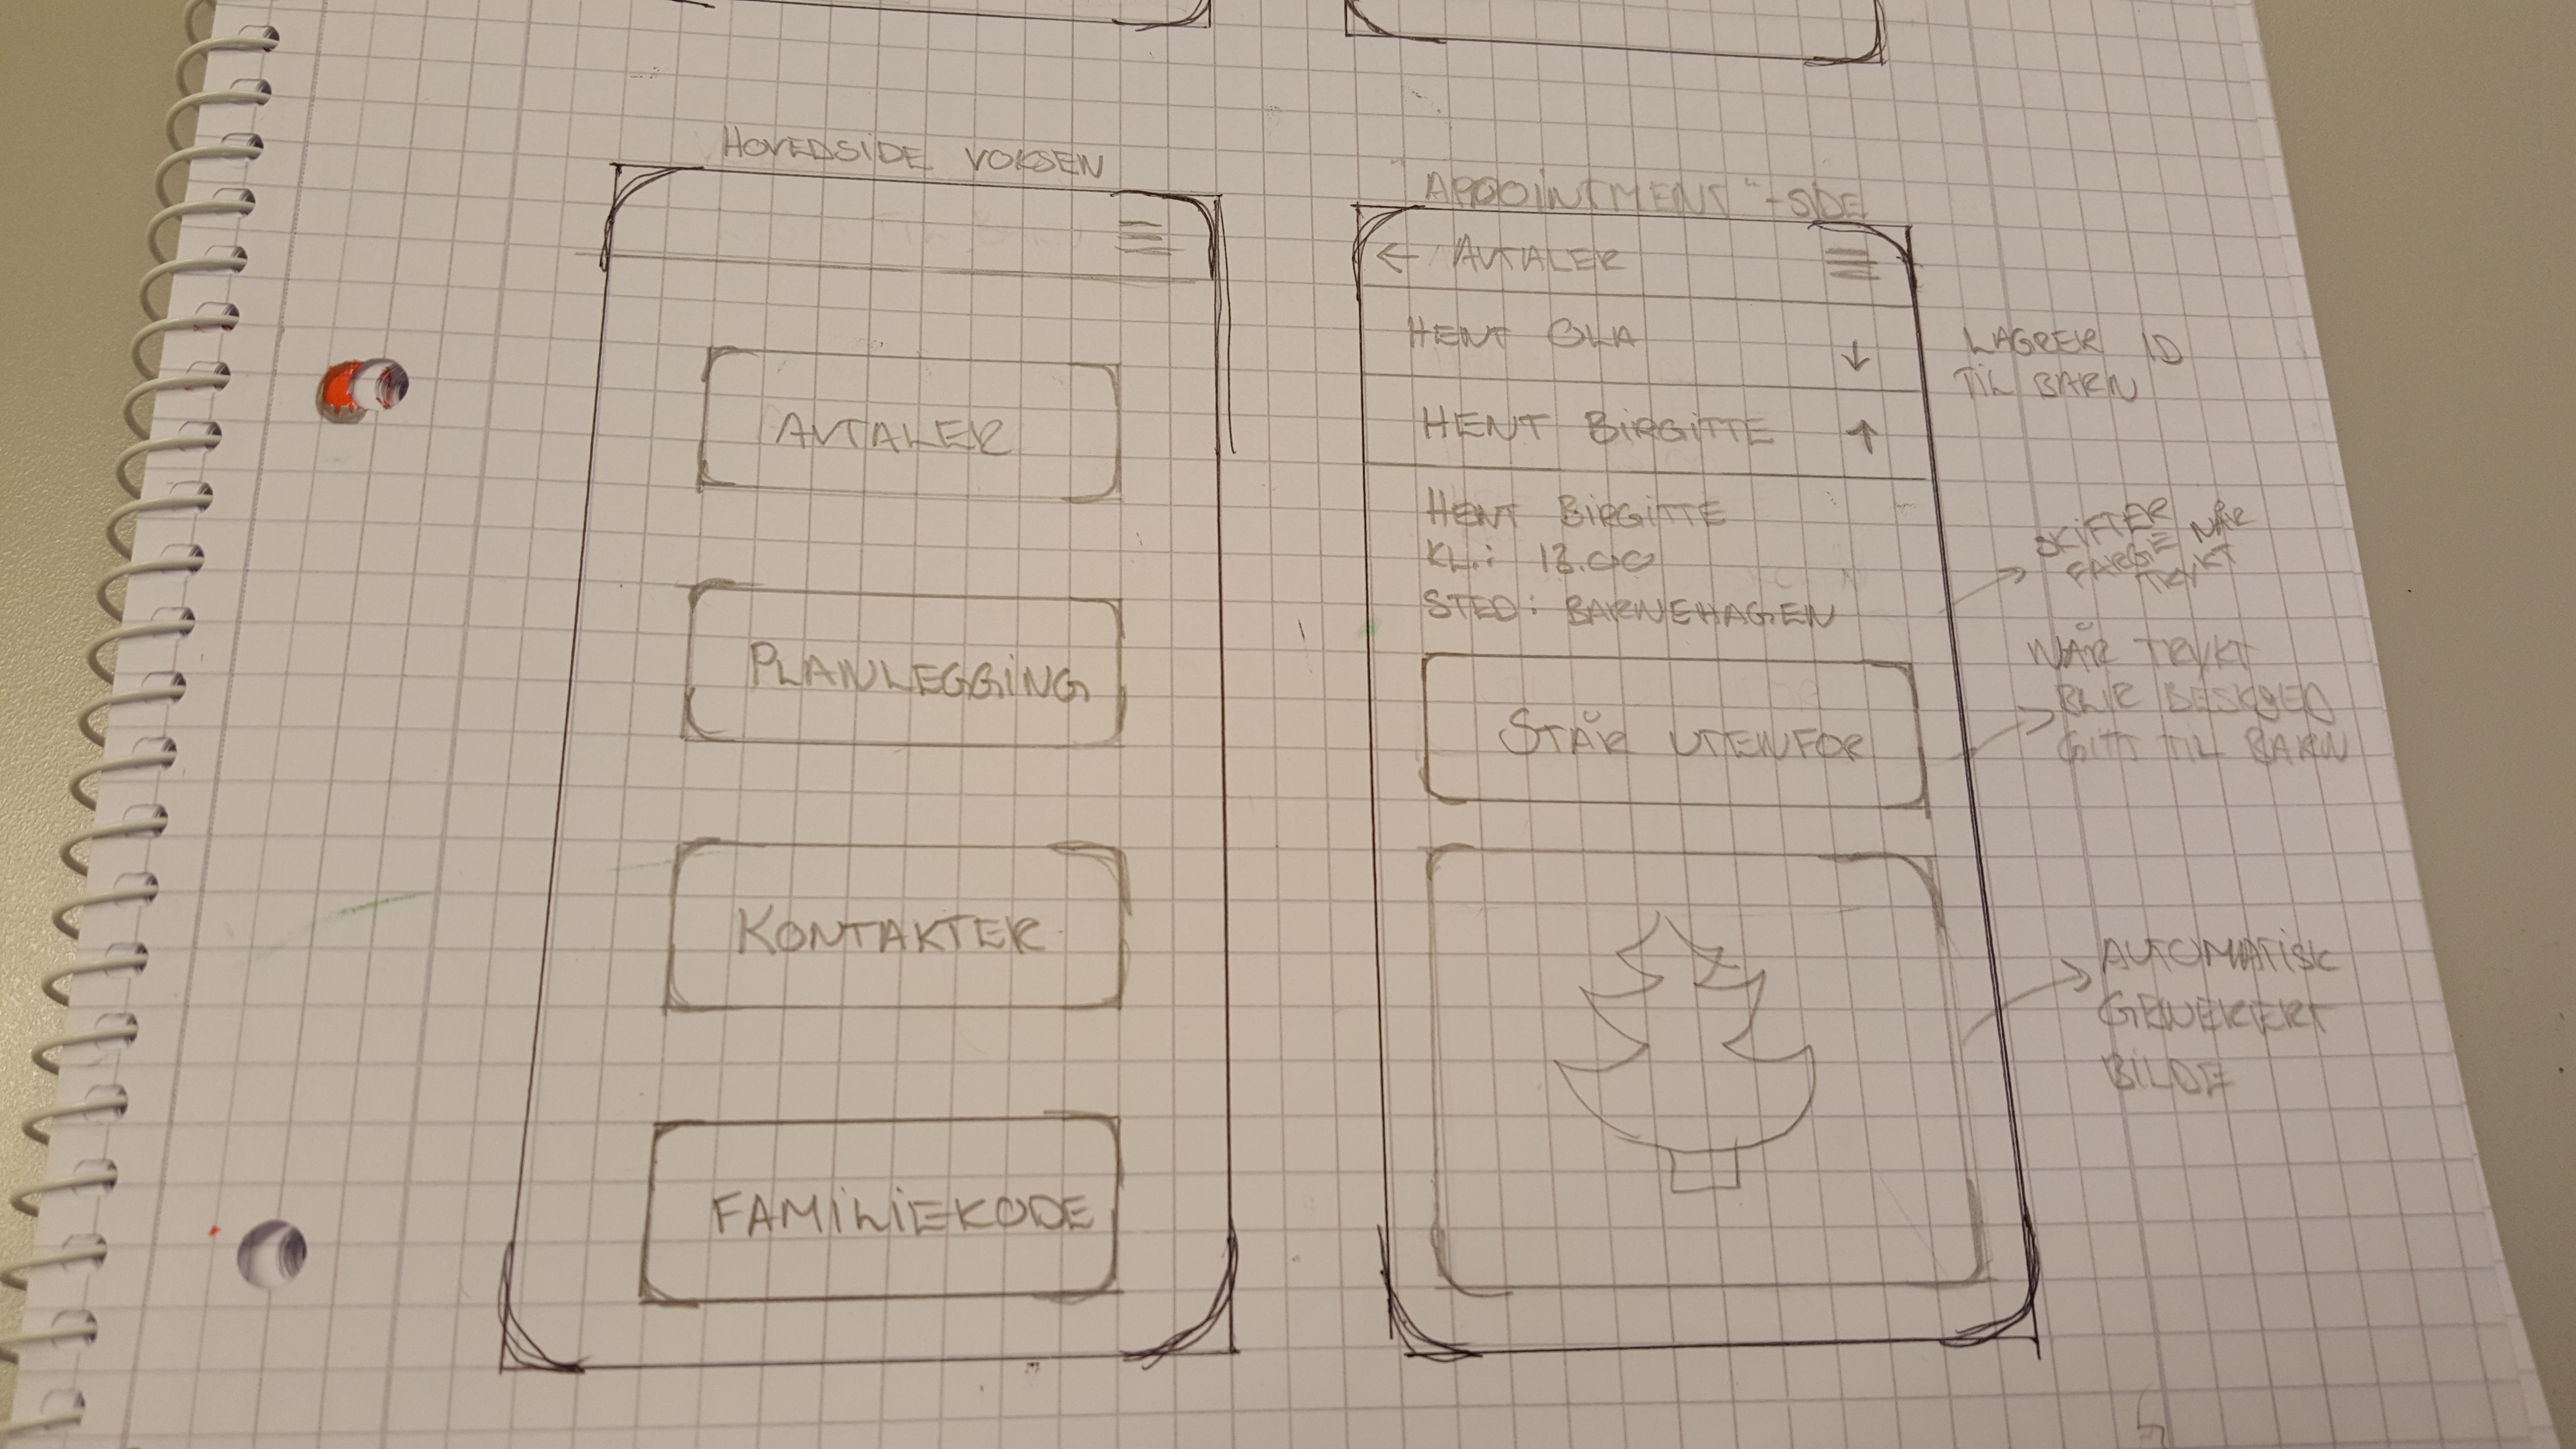 HOVEDSIDE VOKSEN
AVTALER
PLANLEGGING
KONTAKTER
FAMILIEKODE
"APPOINTMENT"-SIDE
← AVTALER
HENT OLA ↓
HENT BIRGITTE ↑
HENT BIRGITTE
KL.: 13.00
STED: BARNEHAGEN
STÅR UTENFOR
LAGRER ID
TIL BARN
SKIFTER
FARGE NÅR
TRYKT
NÅR TRYKT
BLIR BESKJED
GITT TIL BARN
AUTOMATISK
GENERERT
BILDE